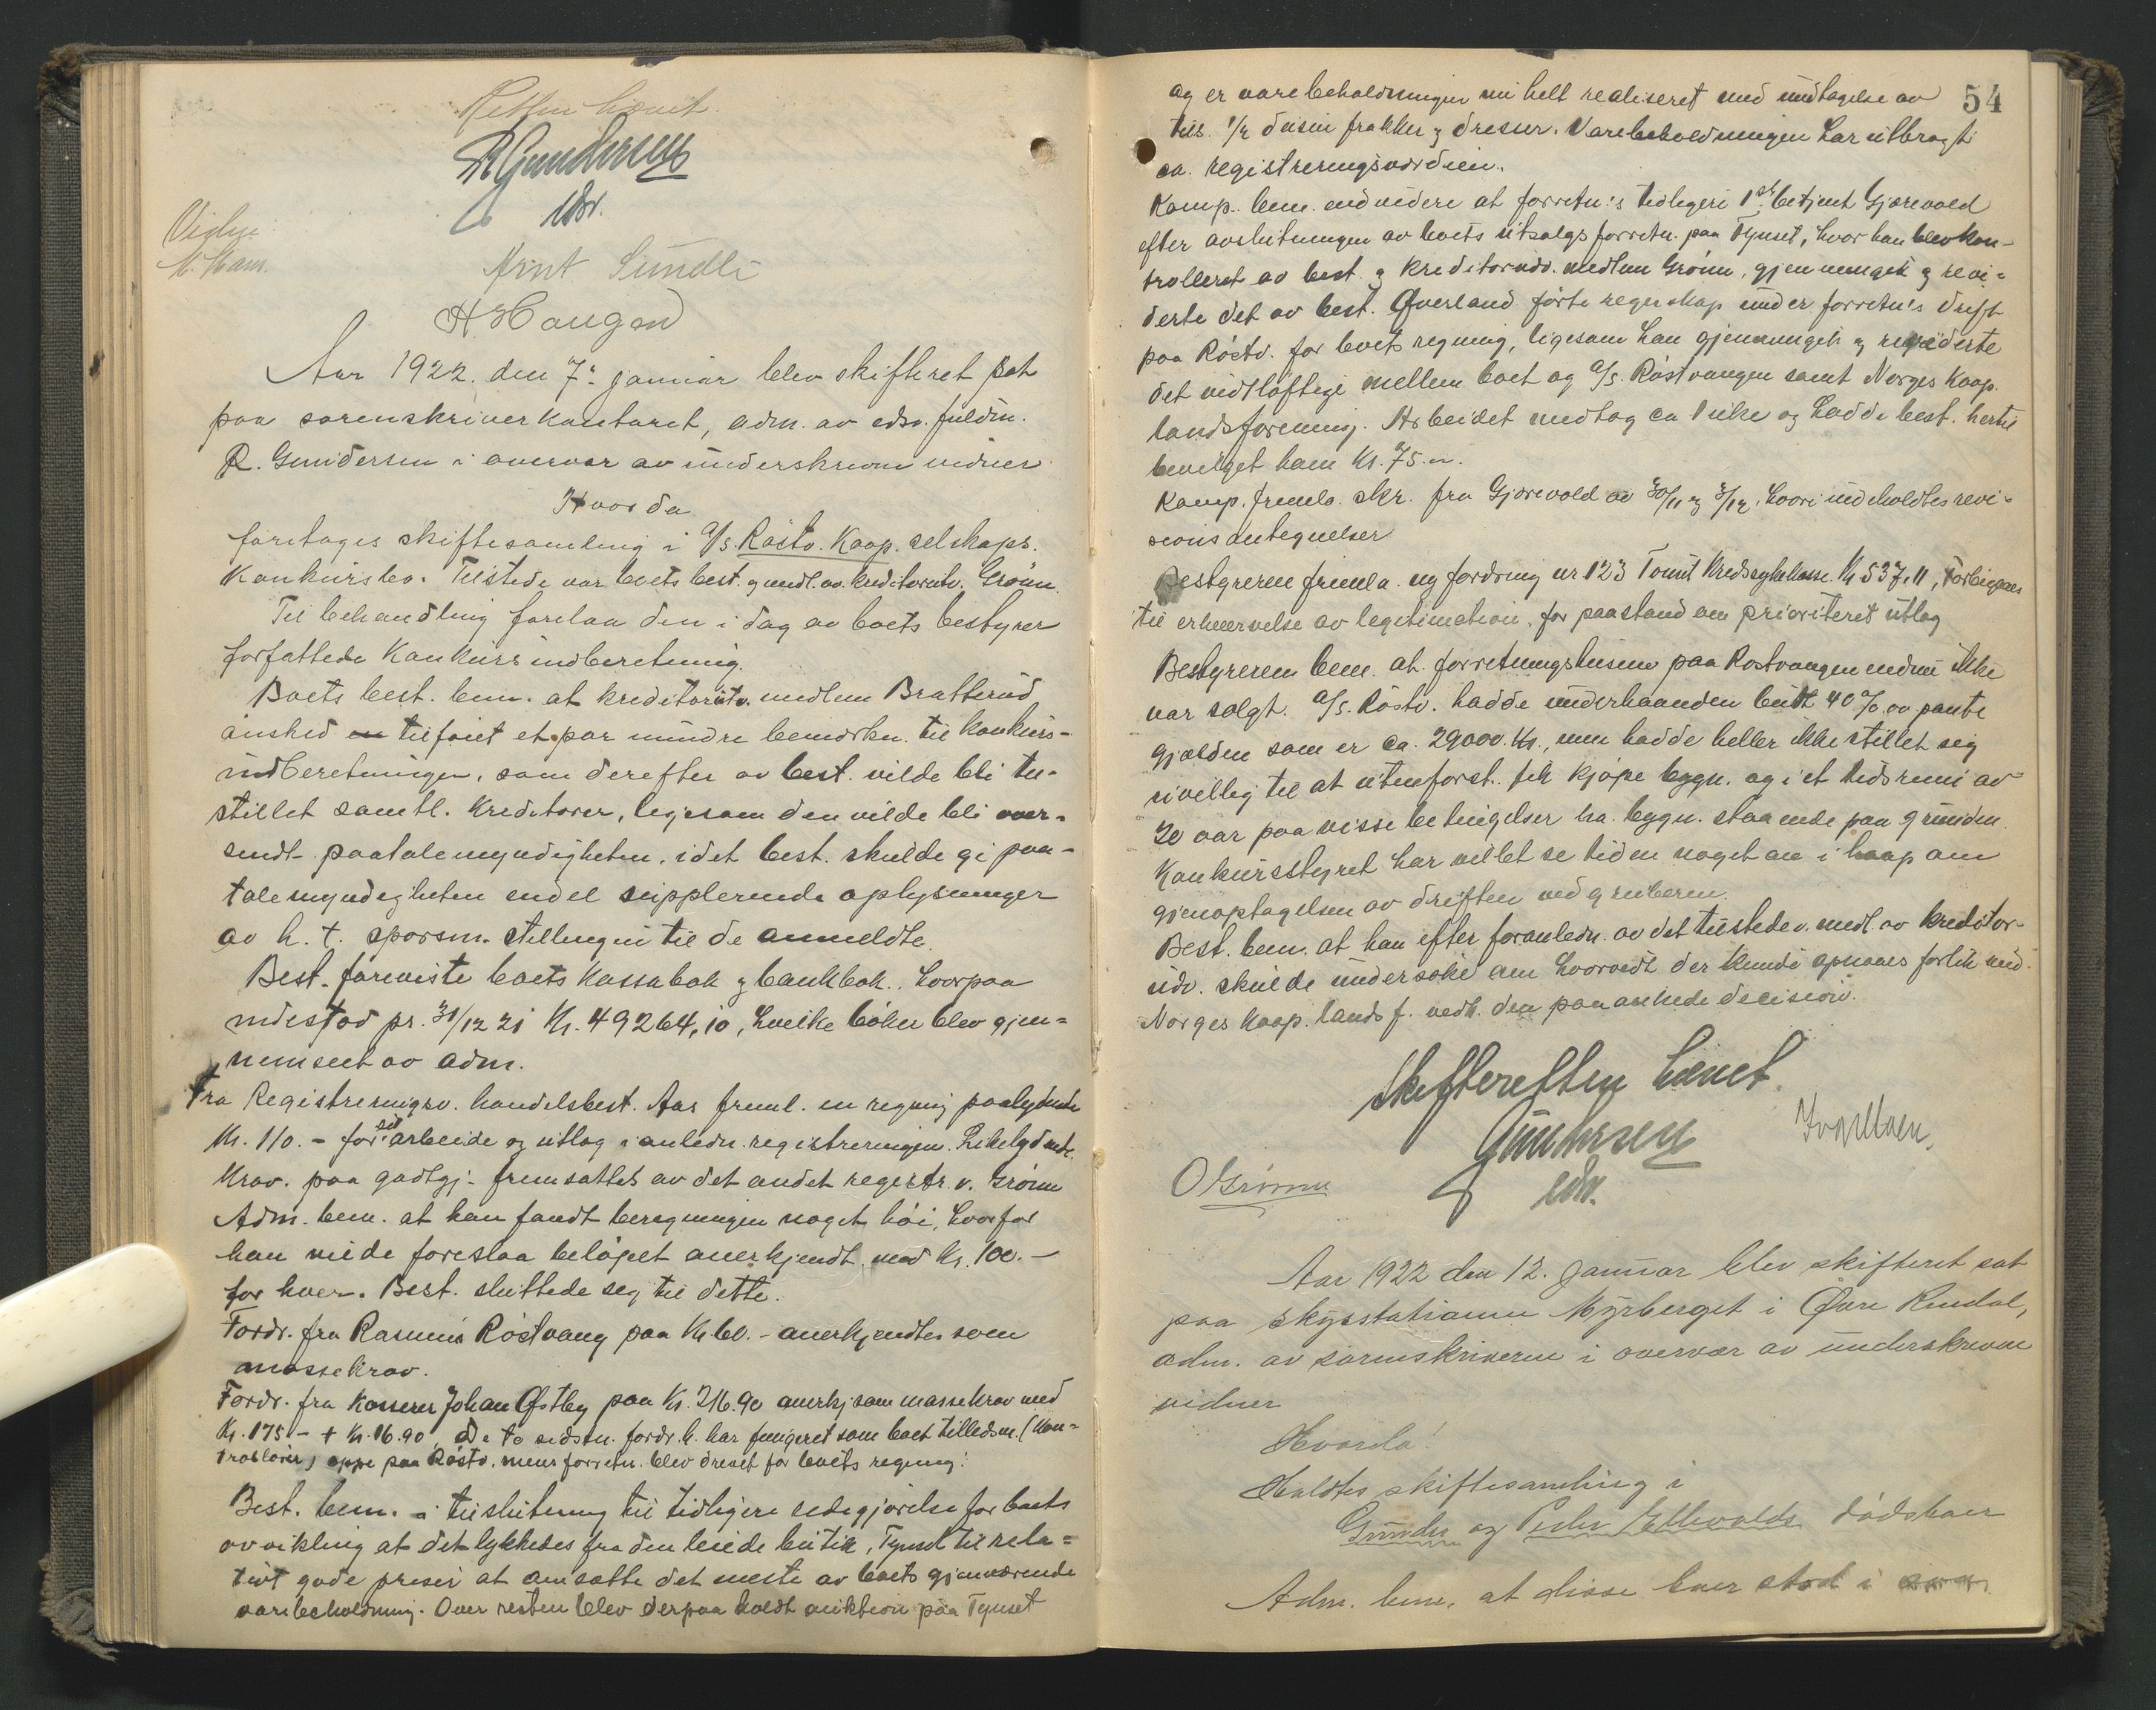 Retten hævet
R Gundersen
edsv.
Vidne
Arnt Sundli
H Haugen
Aar 1922. den 7. januar blev skifteret sat
paa sorenskriverkontoret, adm. av edsv. fuldm.
R. Gundersen i overvær av underskrevne vidner
Hvorda
foretages skiftesamling i A/S. Røstv. Koop. selskaps.
Konkursbo. Tilstede var boets best. og medl. av kreditorutv. Grønn.
Til behandling forelaa den i dag av boets bestyrer
forfattede Konkursindberetning.
Boets best. bem. at kreditorutv. medlem Bratterud
ønsked tilføiet et par mindre bemerkn. til konkurs-
indberetningen, som derefter av best. vilde bli til-
stillet samtl. Kreditorer, ligesom den vilde bli over-
sendt paatalemyndigheten, idet best. skulde gi paa-
talemyndigheten endel supplerende oplysninger
av h. t. spørsm. stillingen til de anmeldte.
Best. foreviste boets Kassabok og bankbok, hvorpaa
indestod pr. 31/12 21 Kr. 49264,10, hvilke bøker blev gjen-
nemseet av adm.
Fra Registreringsv. handelsbest. Aas freml. en regning paalydende
Kr. 110.- for sit arbeide og utlæg i anledn. registreringen. Likelydende
Krav. paa godtgj. fremsattes av det andet registr. v. Grønn
Adm. bem. at han fandt beregningen noget høi, hvorfor
han vilde foreslaa beløpet anerkjendt med Kr. 100.-
for hver. Best. sluttede seg til dette.
Fordr. fra Rasmus Røstvang paa Kr. 60.- anerkjendtes som
massekrav.
Fordr. fra Kasserer Johan Østby paa Kr. 216.90 anerkj. som massekrav med
Kr. 175.- + Kr. 16.90. De to sidstn. fordr. h. har fungeret som boets tilledsm. (Kon-
trollører) oppe paa Røstv. mens forretn. blev drevet for boets regning.
Best. bem. i tilslutning til tidligere redegjørelse for boets
avvikling at det lykkedes fra den leiede butik, Tynset til rela-
tivt gode priser at omsætte det meste av boets gjenværende
varebeholdning. Over resten blev derpaa holdt auktion paa Tynset
54
og er varebeholdningen nu helt realiseret med undtagelse av
tils. 1/2 dusin frakker og dresser. Varebeholdningen har utbragt
ca. registreringsværdien.
Komp. bem. endvidere at forretn:s tidligere 1ste betjent Gjærevold
efter avslutningen av boets utsalgsforretn. paa Tynset, hvor han blev kon-
trolleret av best. og kreditorudv. medlem Grønn, gjennemgik og revi-
derte det av best. Øverland førte regnskap under forretn's drift
paa Røstv. for boets regning, ligesom han gjennemgik og reviderte
det vidtløftige mellem boet og A/S. Røstvangen samt Norges Koop.
landsforening. Arbeidet medtog ca 1 uke og hadde best. hertil
bevilget ham Kr. 75.-.
Komp. fremla. skr. fra Gjærevold av 30/11 og 3/12, hvori indeholdtes revi-
sionsantegnelser
Bestyreren fremla. ny fordring nr 123 Tomt Kredssykekasse. Kr 537,11, Forbigaaes
til erhvervelse av legitimation, for paastand om prioriteret utlæg
Bestyreren bem. at forretningshusene paa Røstvangen endnu ikke
var solgt. A/S. Røstv. hadde underhaanden budt 40 % av pante
gjælden som er ca. 29000. Kr., men hadde heller ikke stillet seg
uvillig til at utenforst. fik kjøpe bygn. og i et tidsrum av
20 aar paa visse betingelser ha. bygn. staaende paa grunden
Konkursstyret har villet se tiden noget an i haap om
gjenoptagelsen av driften ved gruberne.
Best. bem. at han efter foranledn. av det tilstedev. medl. av kreditor-
udv. skulde undersøke om hvorvidt der kunde opnaaes forlik med
Norges Koop. landsf. vedk. den paaankede decision.
Skifteretten hævet.
Gundersen
edsv.
O Grønn
Aar 1922 den 12. januar blev skifteret sat
paa skysstationen Myrberget i Øvre Rendal,
adm. av sorenskriveren i overvær av underskrevne
vidner
Hvorda!
Holdtes skiftesamling i
Gunder og Peder Ellevolds dødsboer
Adm. bem. at disse boer stod i